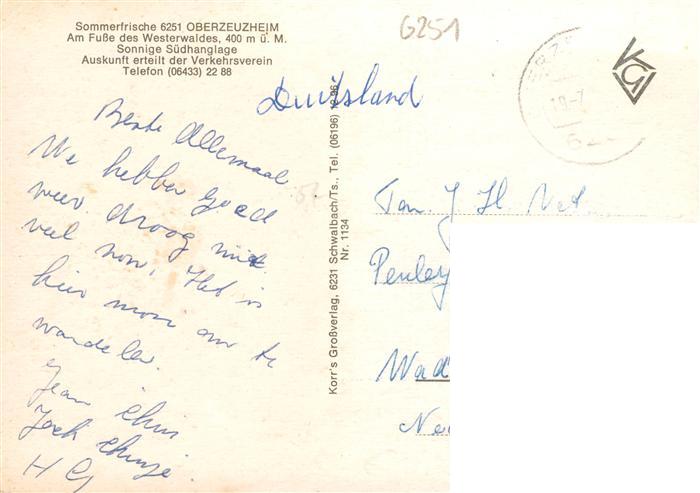 Sommerfrische 6251 OBERZEUZHEIM
Am Fuße des Westerwaldes, 400 m ü. M.
Sonnige Südhanglage
Auskunft erteilt der Verkehrsverein
Telefon (06433) 22 88
6251
Duitsland
Beste Allemaal
We hebben goed
weer droog niet
veel zon. Het is
hier mooi om te
wandelen.
H G
Korr's Großverlag, 6231 Schwalbach/Ts., Tel. (06196)
Nr. 1134
Fam. J. H.
Wad
Ne